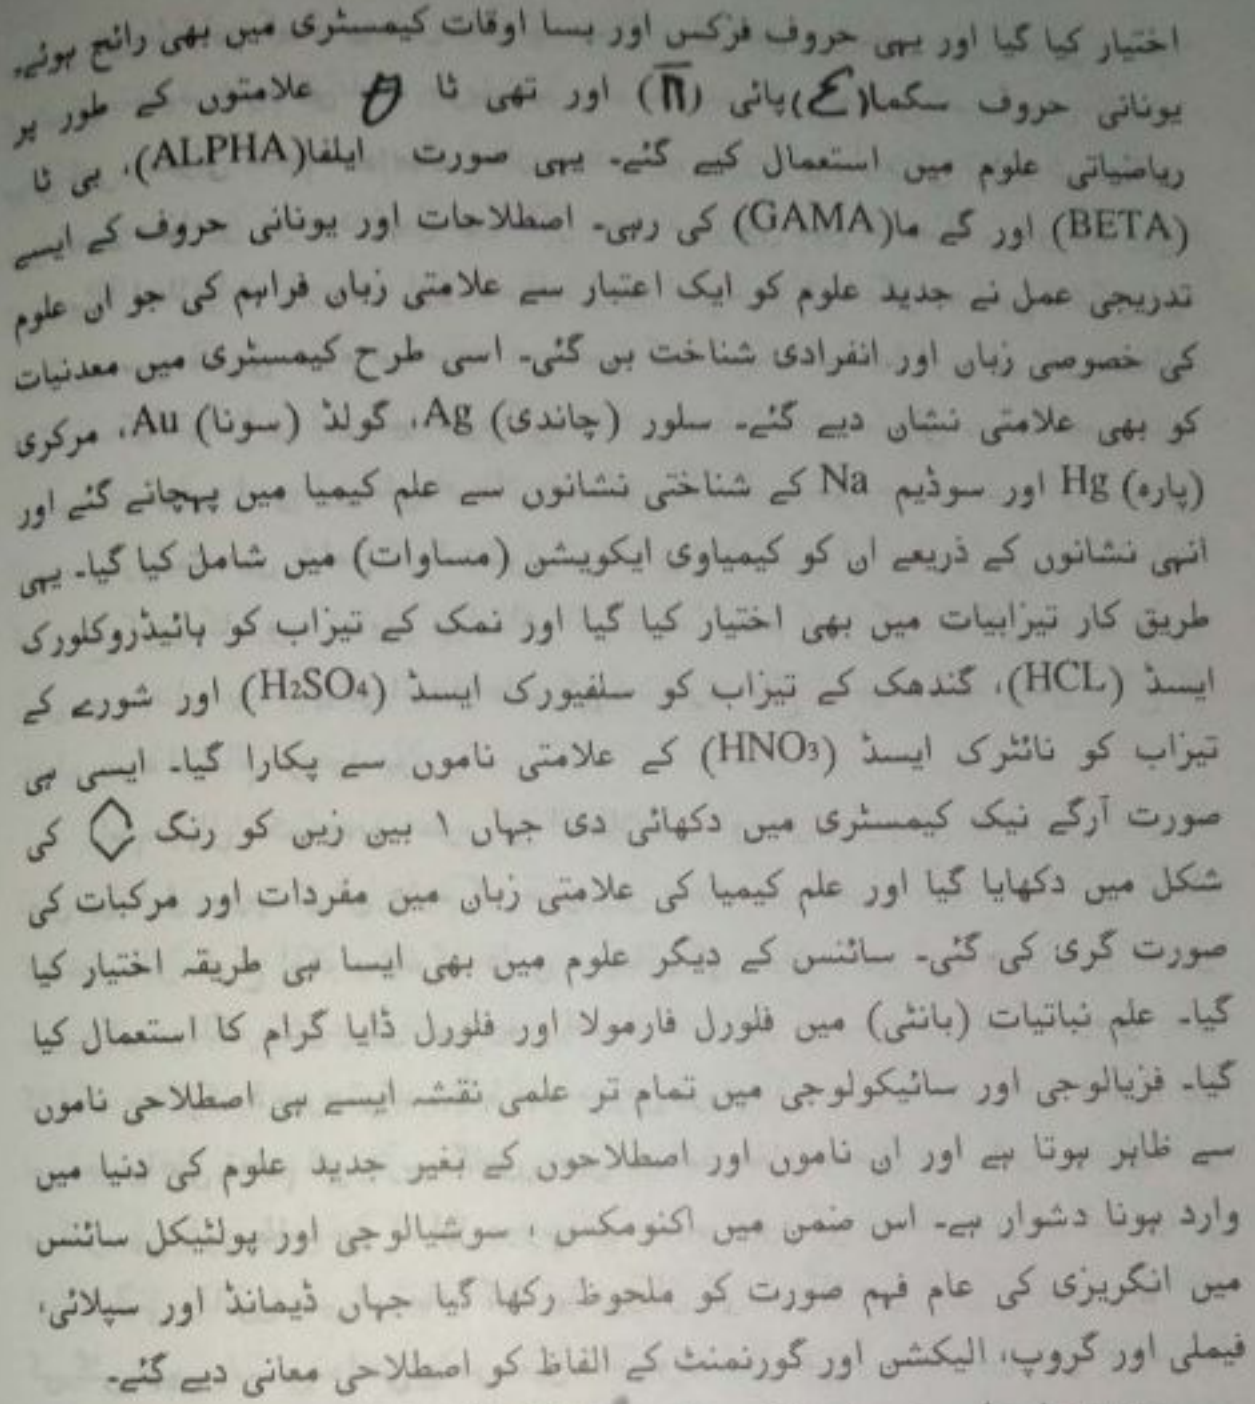 اختیار کیا گیا اور یہی حروف فزکس اور بسا اوقات کیمسٹری میں بھی رائج ہوئے۔
یونانی حروف سگما(Σ)پائی (π) اور تھی ٹا θ علامتوں کے طور پر
ریاضیاتی علوم میں استعمال کیے گئے۔ یہی صورت ایلفا(ALPHA)، بی ٹا
(BETA) اور گے ما(GAMA) کی رہی۔ اصطلاحات اور یونانی حروف کے ایسے
تدریجی عمل نے جدید علوم کو ایک اعتبار سے علامتی زبان فراہم کی جو ان علوم
کی خصوصی زبان اور انفرادی شناخت بن گئی۔ اسی طرح کیمسٹری میں معدنیات
کو بھی علامتی نشان دیے گئے۔ سلور (چاندی) Ag، گولڈ (سونا) Au، مرکری
(پارہ) Hg اور سوڈیم Na کے شناختی نشانوں سے علم کیمیا میں پہچانے گئے اور
انہی نشانوں کے ذریعے ان کو کیمیاوی ایکویشن (مساوات) میں شامل کیا گیا۔ یہی
طریق کار تیزابیات میں بھی اختیار کیا گیا اور نمک کے تیزاب کو ہائیڈروکلورک
ایسڈ (HCL)، گندھک کے تیزاب کو سلفیورک ایسڈ (H2SO4) اور شورے کے
تیزاب کو نائٹرک ایسڈ (HNO3) کے علامتی ناموں سے پکارا گیا۔ ایسی ہی
صورت آرگے نیک کیمسٹری میں دکھائی دی جہاں ۱ بین زین کو رنگ کی
شکل میں دکھایا گیا اور علم کیمیا کی علامتی زبان میں مفردات اور مرکبات کی
صورت گری کی گئی۔ سائنس کے دیگر علوم میں بھی ایسا ہی طریقہ اختیار کیا
گیا۔ علم نباتیات (بانٹی) میں فلورل فارمولا اور فلورل ڈایا گرام کا استعمال کیا
گیا۔ فزیالوجی اور سائیکولوجی میں تمام تر علمی نقشہ ایسے ہی اصطلاحی ناموں
سے ظاہر ہوتا ہے اور ان ناموں اور اصطلاحوں کے بغیر جدید علوم کی دنیا میں
وارد ہونا دشوار ہے۔ اس ضمن میں اکنومکس ، سوشیالوجی اور پولٹیکل سائنس
میں انگریزی کی عام فہم صورت کو ملحوظ رکھا گیا جہاں ڈیمانڈ اور سپلائی،
فیملی اور گروپ، الیکشن اور گورنمنٹ کے الفاظ کو اصطلاحی معانی دیے گئے۔